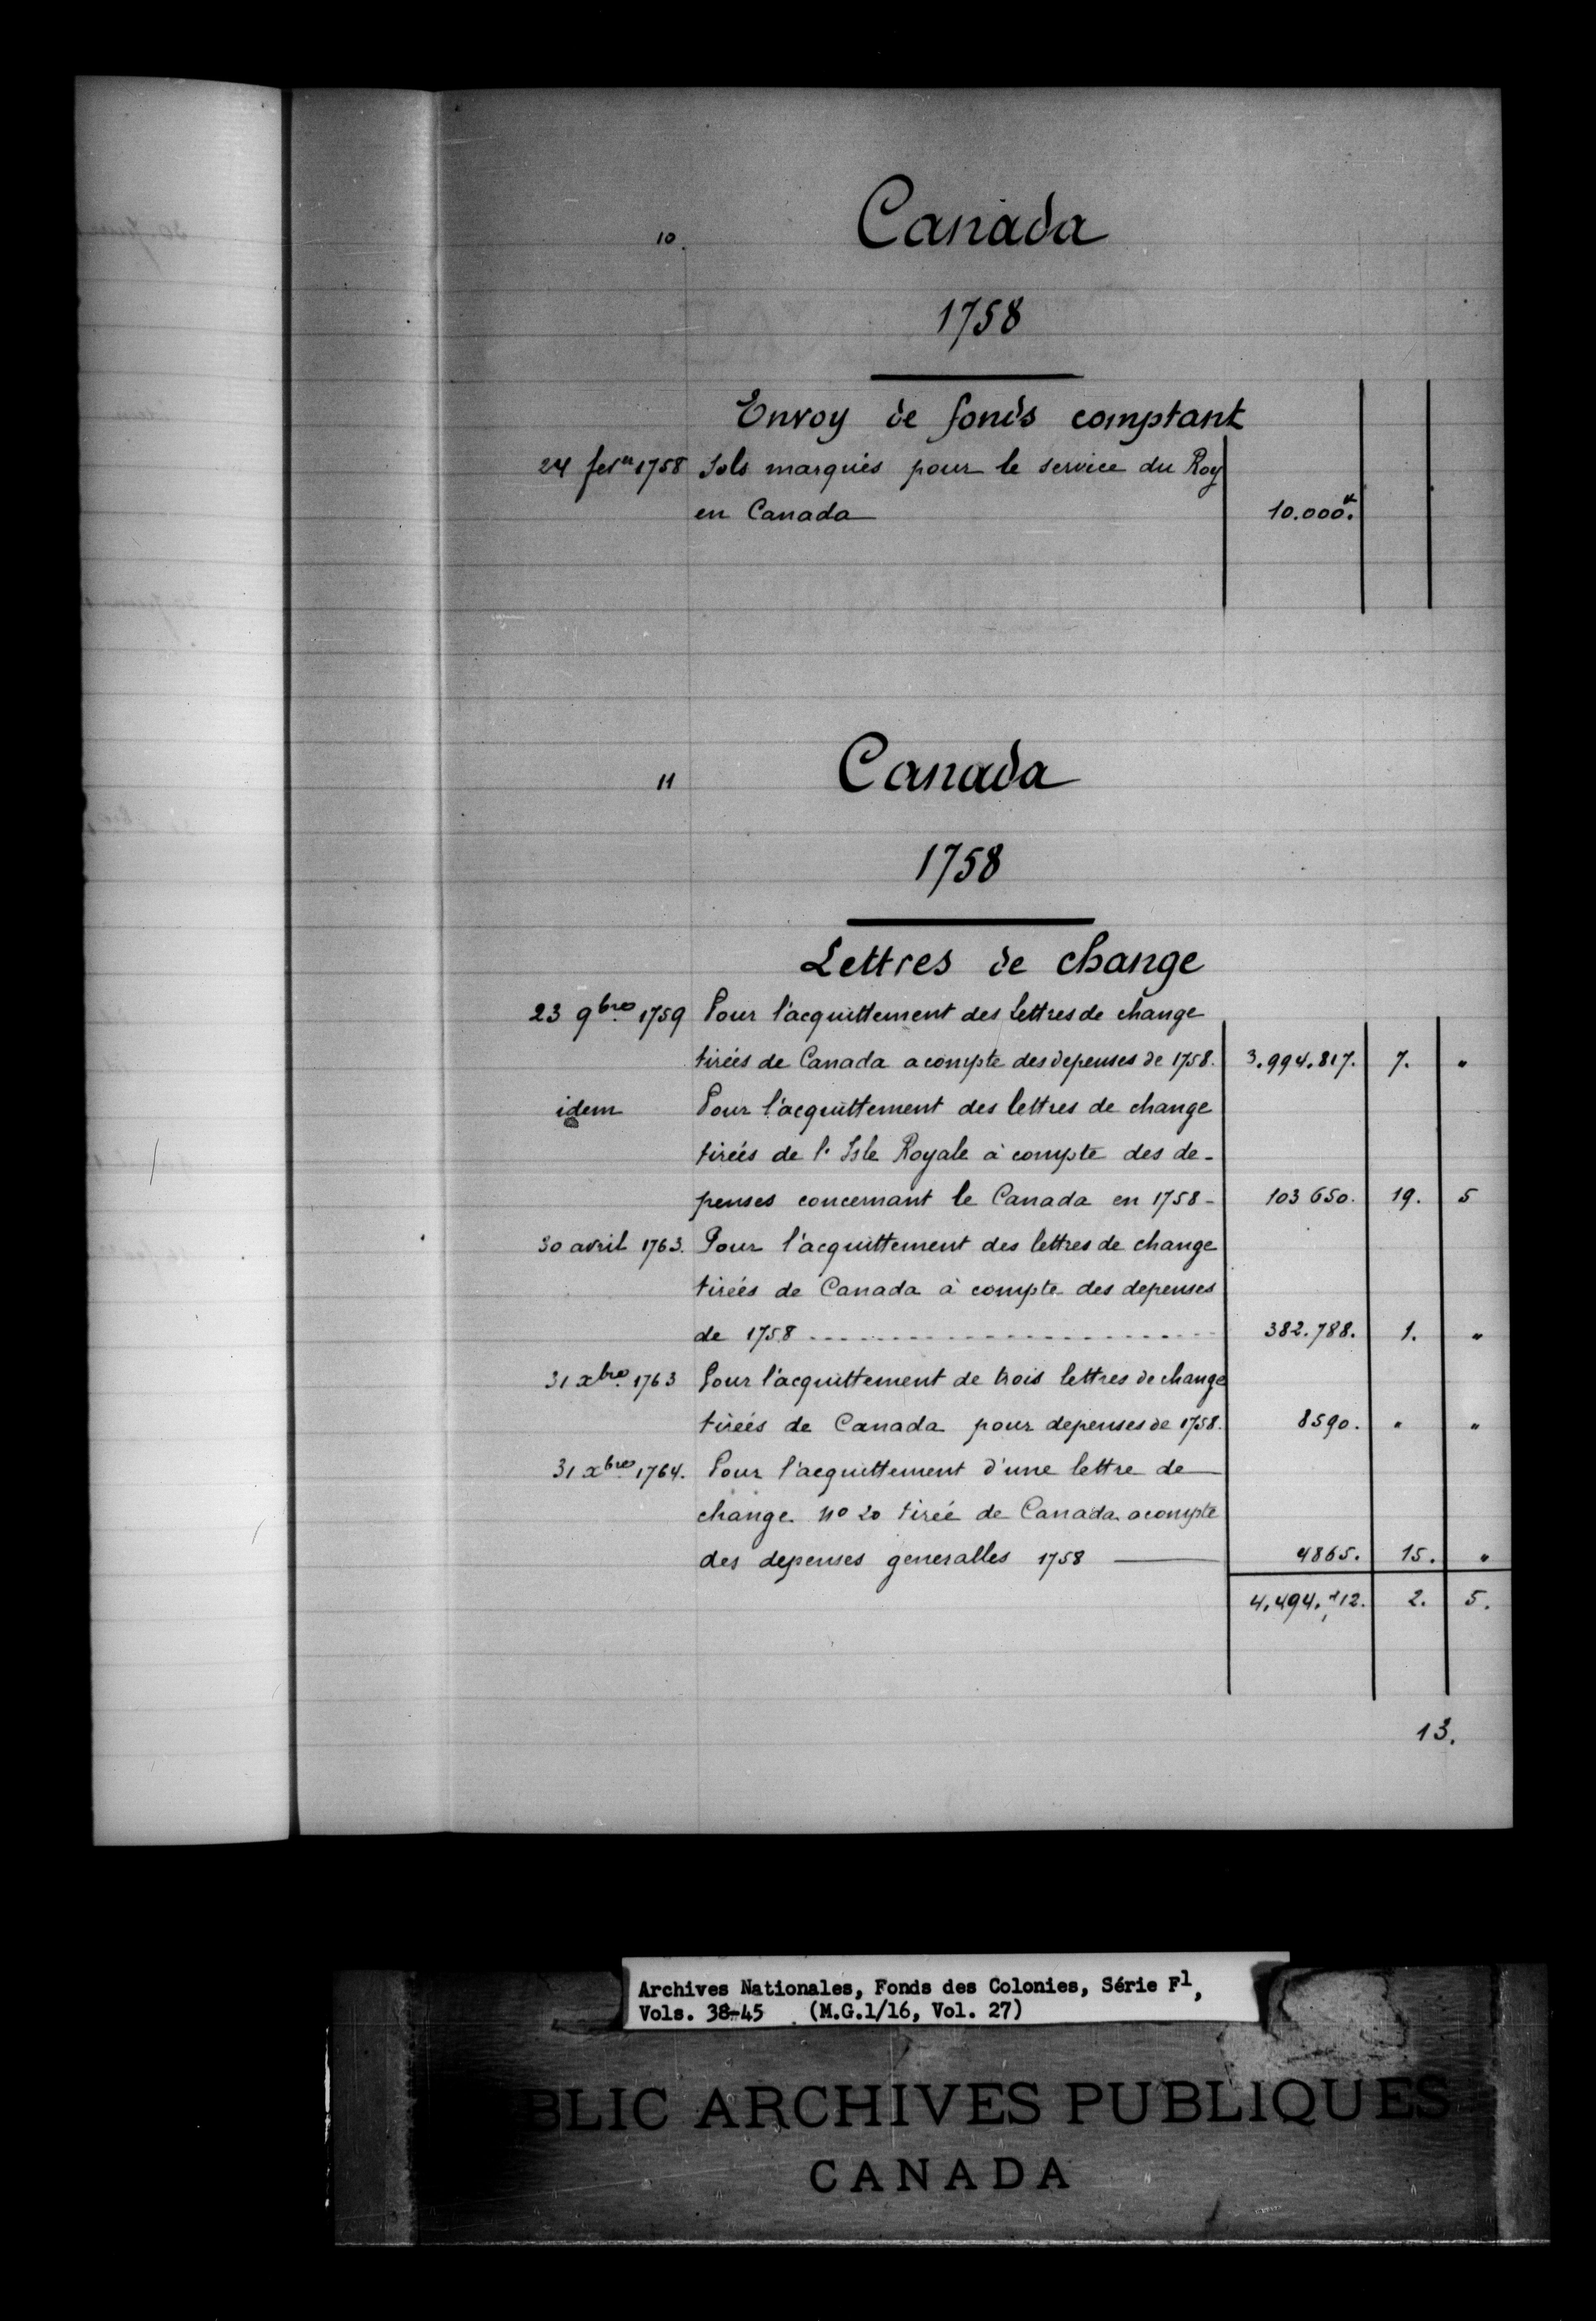 10. Canada
1758
Envoy de fonds comptant
24 fer. er 1758 Sols marqués pour le service du Roy
en Canada 10.000.
11 Canada
1758
Lettres de change
23 9bre 1759 Pour l'acquittement des Lettres de change
tirées de Canada a compte des depenses de 1758. 3.994.817. 7. "
idem Pour l'acquittement des lettres de change
tirées de l'Isle Royale à compte des de-
penses concernant le Canada en 1758 - 103 650. 19. 5
30 avril 1763. Pour l'acquittement des lettres de change
tirées de Canada à compte des depenses
de 1758 382.788. 1. "
31 xbre 1763 Pour l'acquittement de trois lettres de change
tirées de Canada pour depenses de 1758. 8590. " "
31 xbre 1764. Pour l'acquittement d'une lettre de
change no 20 tirée de Canada a compte
des depenses generalles 1758 4865. 15. "
4.494.712. 2. 5.
13.
Archives Nationales, Fonds des Colonies, Série F1,
Vols. 38-45 (M.G.1/16, Vol. 27)
BLIC ARCHIVES PUBLIQUES
CANADA